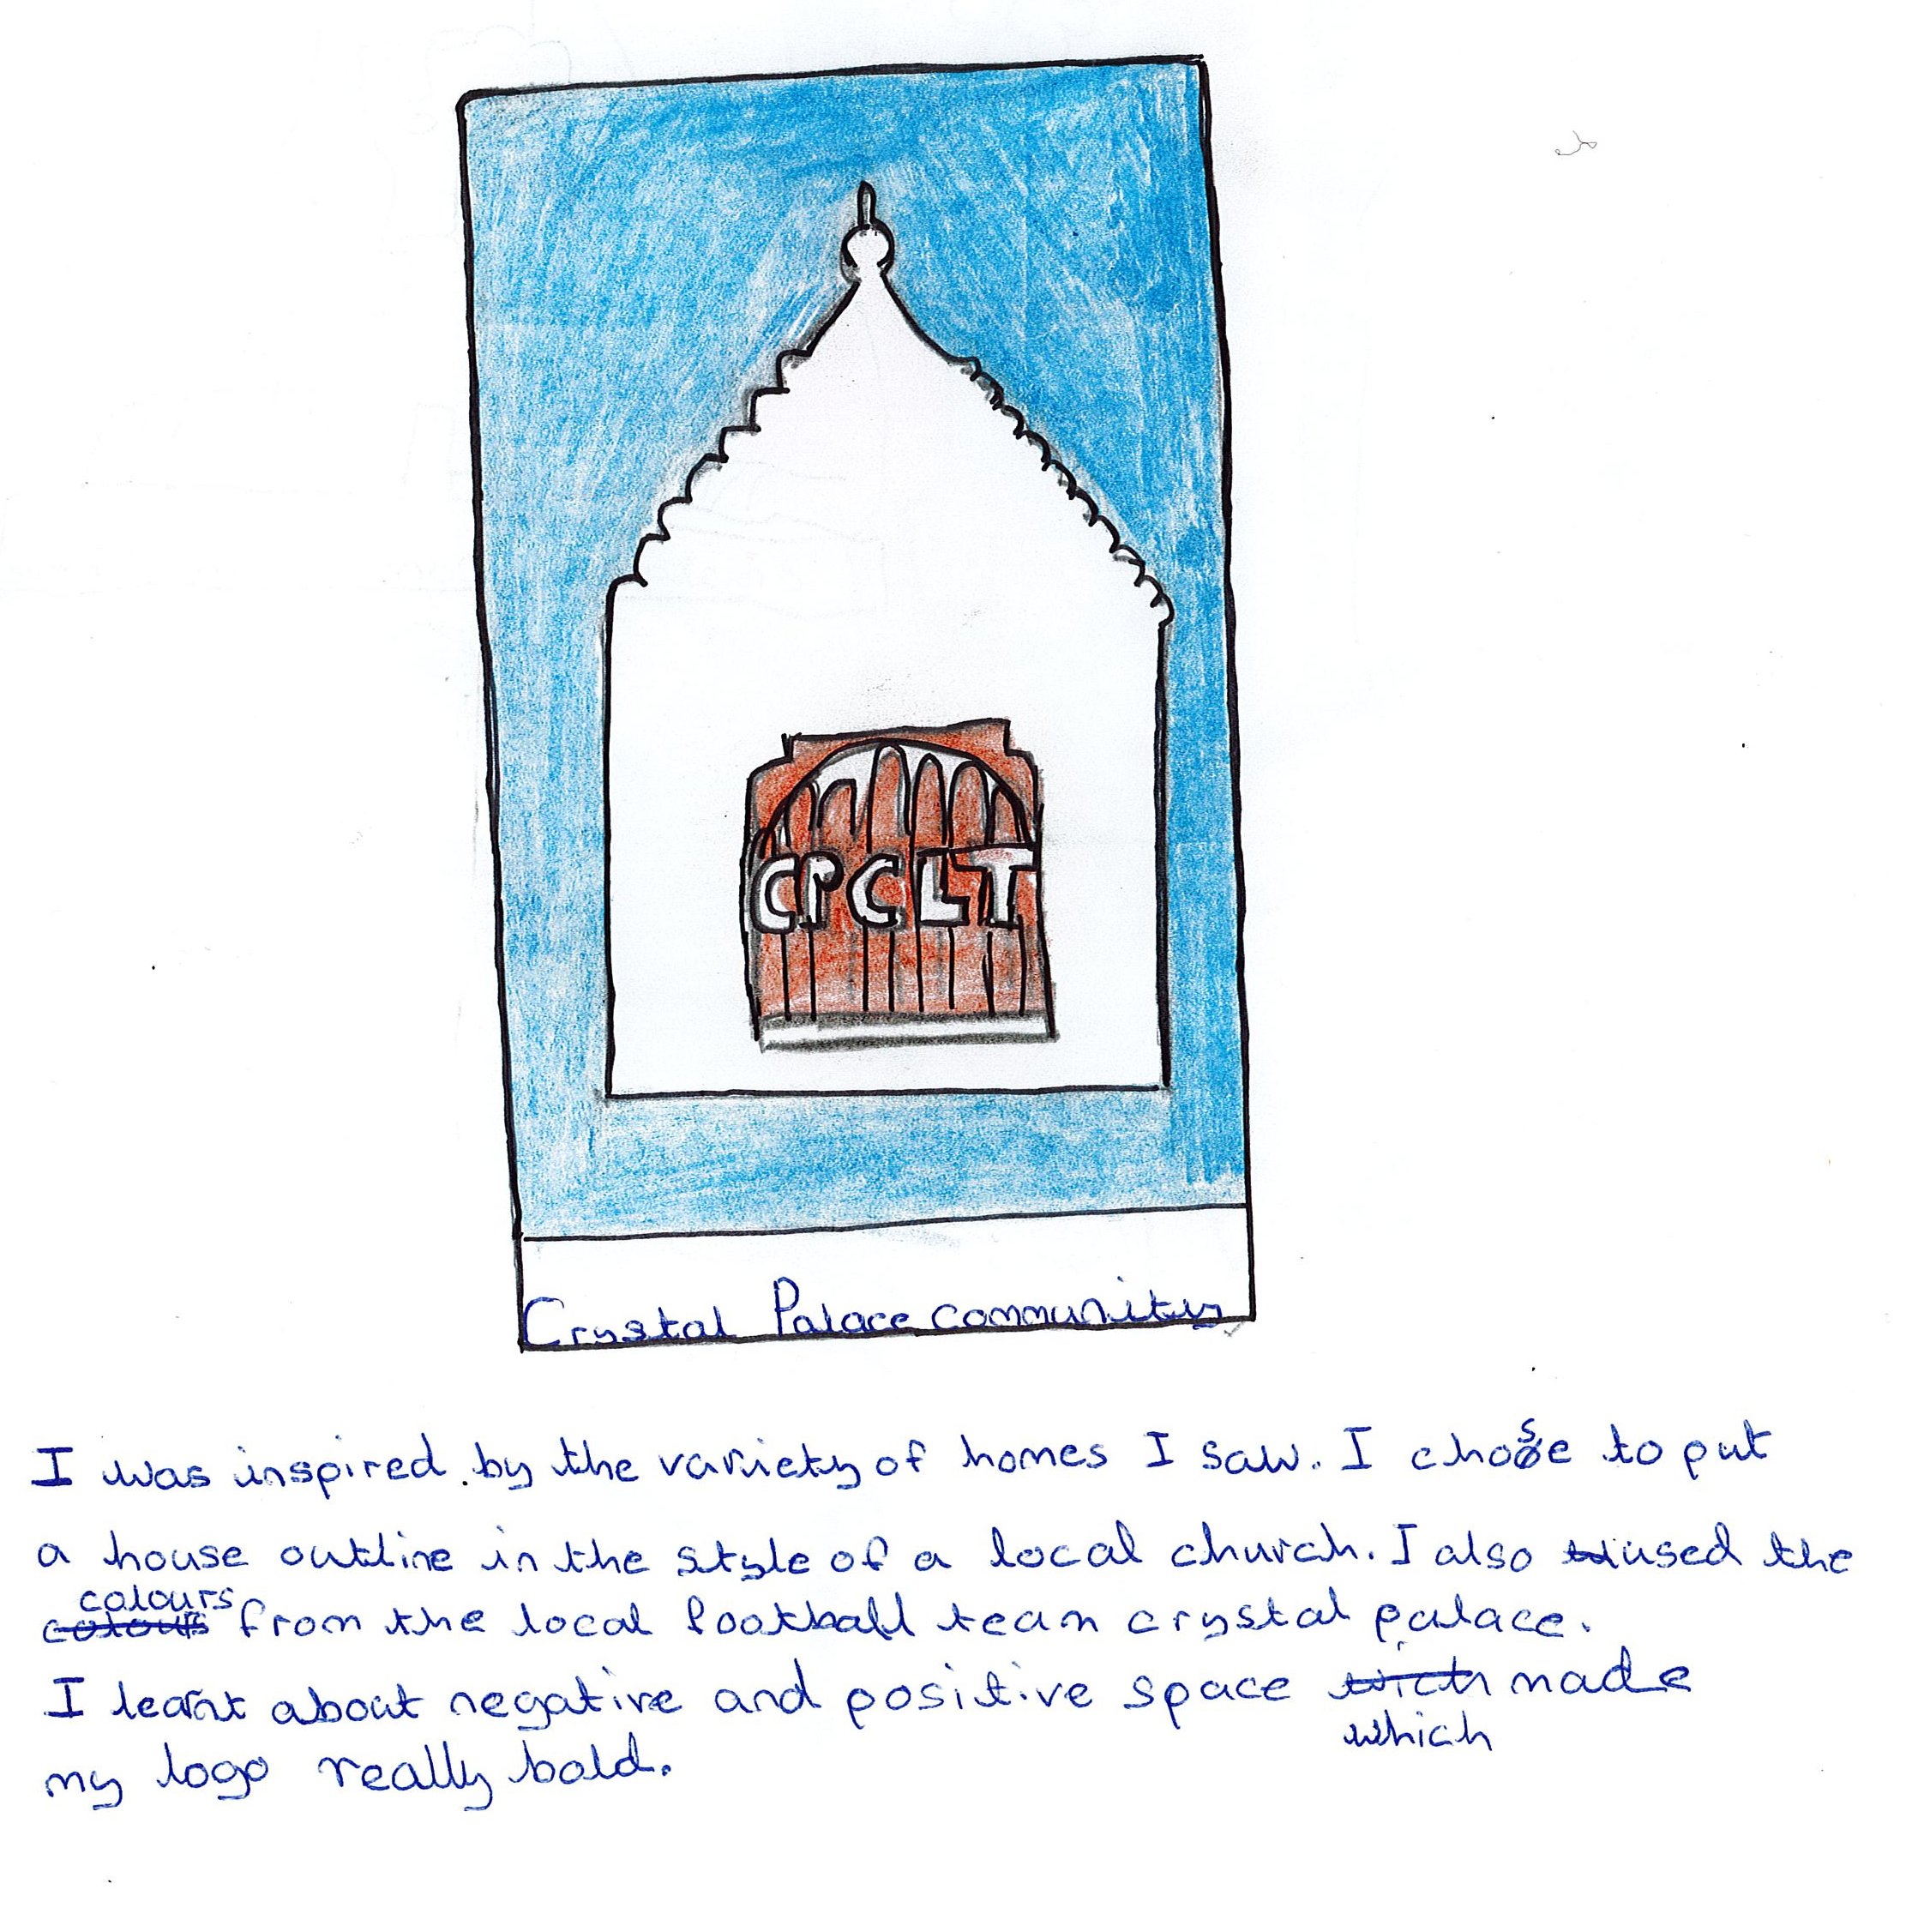 CPCLT
Crystal Palace community
I was inspired by the variety of homes I saw. I chose to put
a house outline in the style of a local church. I also used the
colours from the local football team crystal palace.
I learnt about negative and positive space which made
my logo really bold.